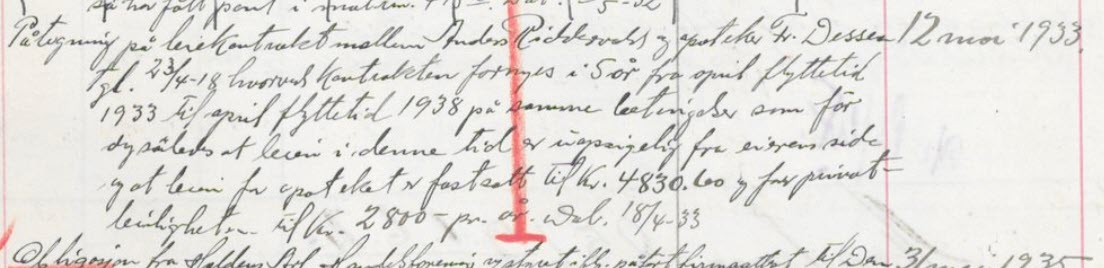 så har fått pant i matrin.
Påtegning på leiekontrakt mellem Anders Riddervolds og apoteker Fr. Dessen 12 mai 1933.
tgl. 23/4-18 hvorved kontrakten fornyes i 5 år fra april flyttetid
1933 til april flyttetid 1938 på samme betingelser som för
dog således at leien i denne tid er uopsigelig fra eierens side
og at leien for apoteket er fastsatt til Kr. 4830.00 og for privat-
leiligheten til Kr. 2800- pr. år. Dat. 18/4-33
Obligasjon fra Haldens